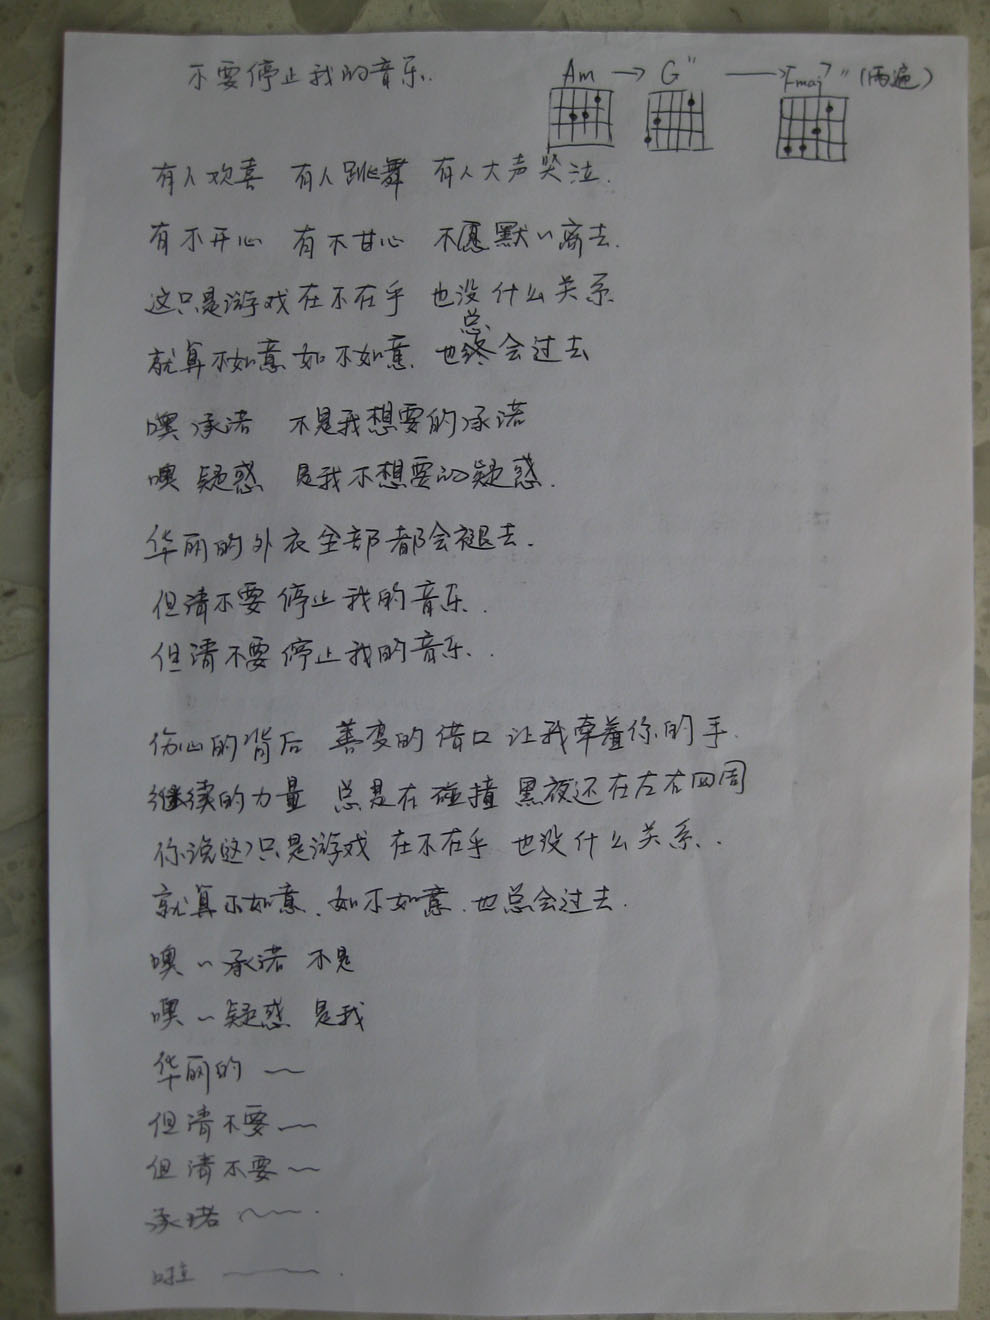 不要停止我的音乐.
Am → G" → Fmaj7" (两遍)
有人欢喜 有人跳舞 有人大声哭泣.
有不开心 有不甘心 不愿默〃离去.
这只是游戏在不在乎 也没什么关系
总
就算不如意如不如意. 也终会过去
噢 承诺 不是我想要的承诺
噢 疑惑 是我不想要的疑惑.
华丽的外衣全部都会褪去.
但请不要停止我的音乐..
但请不要停止我的音乐..
伤心的背后 善变的借口 让我牵着你的手.
继续的力量 总是在碰撞 黑夜还在左右四周
你说这只是游戏 在不在乎 也没什么关系..
就算不如意.如不如意.也总会过去.
噢〃承诺 不是
噢〃疑惑 是我
华丽的 ~
但请不要~
但请不要~
承诺 ~~.
啦 —— .